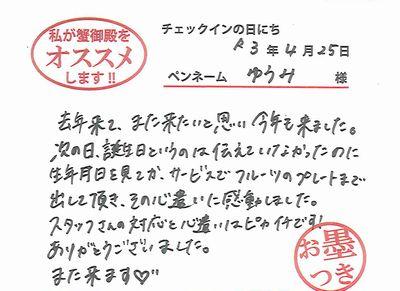 私が蟹御殿を
オススメ
します!!
チェックインの日にち
R3年4月25日
ペンネーム ゆうみ 様
去年来て、また来たいと思い今年も来ました。
次の日、誕生日というのは伝えていなかったのに
生年月日を見てか、サービスでフルーツのプレートまで
出して頂き、その心遣いに感動しました。
スタッフさんの対応と心遣いはピカイチです!
ありがとうございました。
また来ます♡"
お墨
つき